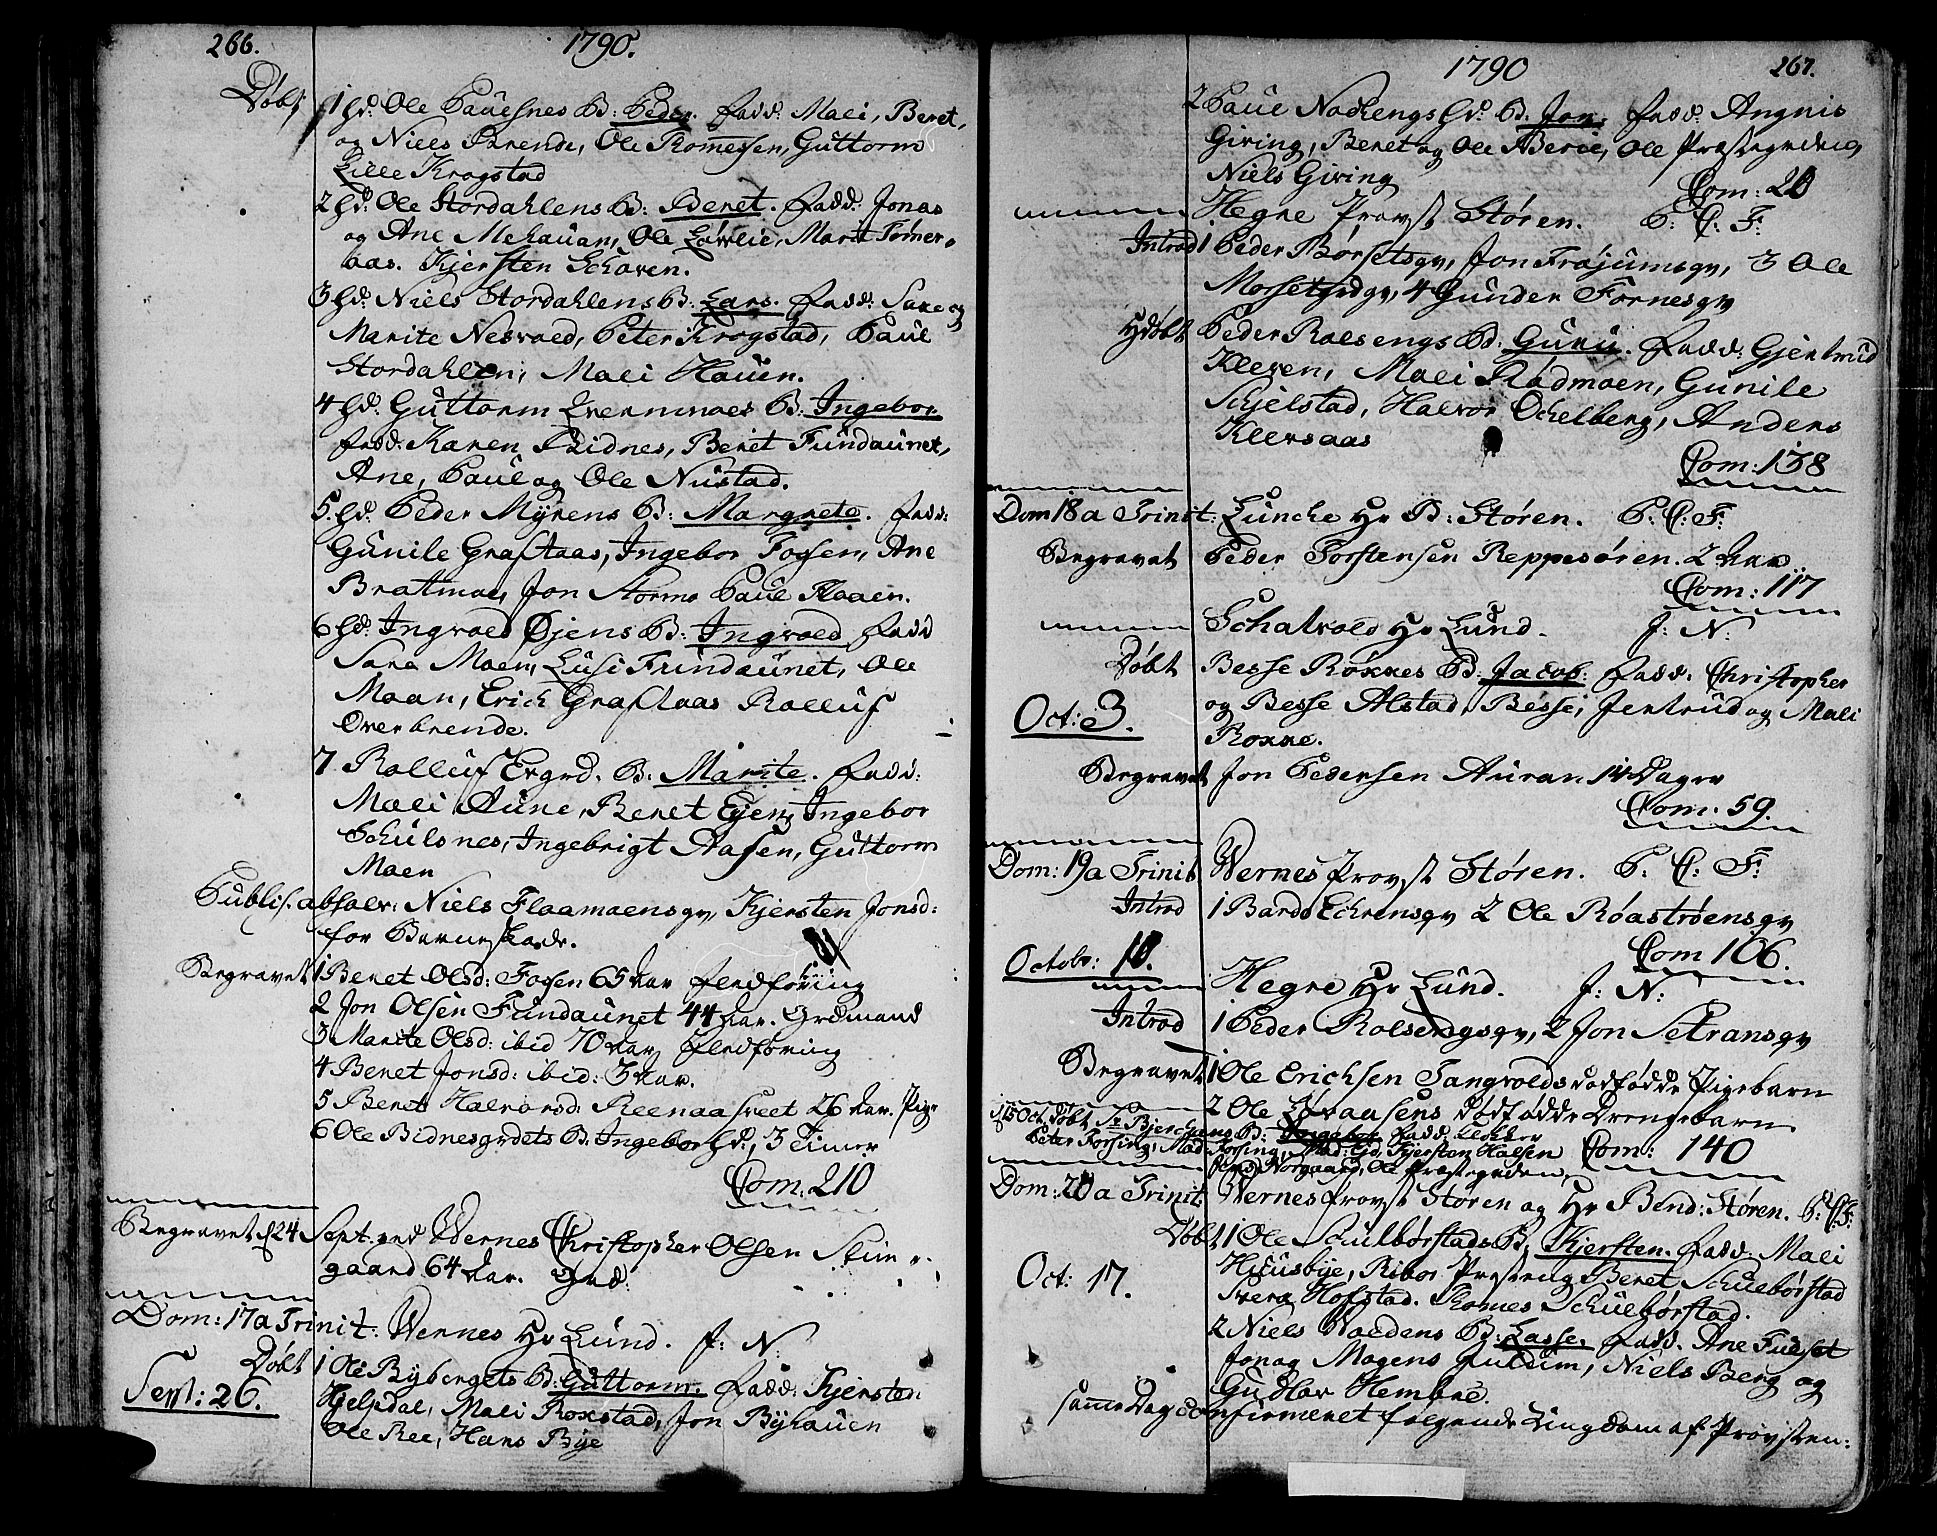 266.
1790.
Døbt 1 Hd: Ole Pauesnes B: Peder. Fadd: Mali, Beret,
og Niels Brende, Ole Romessen, Guttorm
Lille Krogstad
2 Hd: Ole Stordahlens B: Beret. Fadd: Jonas
og Ane Mehauan, Ole Løvlie, Marit Tømer-
aas. Kjersten Scharen.
3 Hd: Niels Stordahlens B: Lars. Fadd: Sara og
Marite Nesvold, Peter Krogstad, Paul
Stordahlen, Mali Hauen.
4 Hd: Guttorm Qvernmoes B: Ingebor.
Fadd: Karen Bidnes, Beret Fundaunet,
Ane, Paul og Ole Nustad.
5. Hd: Peder Myrens B: Margrete. Fadd:
Gunile Grafaas, Ingebor Fossen, Ane
Bratmoe, Jon Stormo Paul Flaaen.
6 Hd: Ingvold Øjens B: Ingvold Fadd
Sara Moen, Lusi Fundaunet, Ole
Moan, Erich Grafaas Rolluf
Overbrende.
7 Rolluf Ergrd. B: Marite. Fadd:
Mali Aune, Beret Ejen, Ingebor
Schulsnes, Ingebrigt Aasen, Guttorm
Moen
Publis. absolv: Niels Flaamoensgv, Kjersten Jonsd:
for Barneskade.
Begravet 1 Beret Olsd: Fossen 65 Aar Fledføring
2 Jon Olsen Fundaunet 44 Aar. Grdmand
3 Marite Olsd: ibid 70 Aar Fledføring
4 Beret Jonsd: ibid: 3 Aar.
5 Beret Halvorsd: Reenaasveet 26 Aar. Pige
6 Ole Bidnesgrdets B: Ingebor Hd: 3 Timer
Com: 210
Begravet d 24 Sept. ved Wernes Christopher Olsen Stuer-
gaard 64 Aar. Grd:
Dom: 17 a Trinit: Wernes Hr Lund. J: N:
Døbt 1 Ole Bybergets B: Guttorm. Fadd: Kjersten
Sept: 26. Hielpdal, Mali Roxstad, Jon Byhauen
Ole Ree, Hans Bye
1790
267.
2 Paul Nochengs Hd: B: Jon. Fadd: Angnis
Giving, Beret og Ole Aberie, Ole Præstegrden,
Niels Giving
Com: 20
Hegre Provst Støren. P: C: F:
Introd 1 Peder Børsetsgv, Jon Frøjumsgv, 3 Ole
Morsetgrdgv, 4 Gunder Fornesgv
Hdøbt Peder Rolsengs B: Guru. Fadd: Gjertrud
Kleven, Mali Rødmoen, Gunile
Schjelstad, Halvor Ochelberg, Anders
Klevsaas
Com: 138
Dom 18 a Trinit: Luncke Hr B: Støren. P: C: F:
Begravet Peder Torstensen Reppesøren. 2 Aar
Com: 117
Schatvold Hr Lund. J: N:
Døbt Besse Røkkes B: Jacob. Fadd: Christopher
og Besse Alstad, Besse, Jertrud og Mali
Oct: 3. Rokke.
Begravet Jon Pedersen Auran 14 Dager
Com: 59.
Dom: 19 a Trinit Wernes Provst Støren. P: C: F:
Introd 1 Bardo Echrensgv 2 Ole Røastrøensgv
Com 106.
Octobr: 10.
Hegre Hr Lund. J: N:
Introd 1 Peder Rolsengsgv, 2 Jon Setransgv
Begravet 1 Ole Erichsen Tangvolds dødfødde Pigebarn
2 Ole Løvaasens dødfødde Drengebarn
d 15 Oct. døbt Sr Bjerchans B: Ingebor Fadd:
Peter Forsing, Mad: Forsing, Mad: Kjersten Halsen
Jens Norgaard, Ole Præstegrden,
Com: 140
Dom: 20 a Trinit Wernes Provst Støren og Hr Bend: Støren. P: C: F:
Døbt 1 Ole Schulbørstads B: Kjersten. Fadd: Mali
Oct: 17. Huusbye, Ribor Præsteng Beret Schuebørstad
Hofstad. Thomes Schuebørstad.
2 Niels Voldens B: Lasse. Fadd. Ane Fulset
Jon og Mogens Julum, Niels Berg og
Gudlov Hembre.
samme Dag confirmeret følgende Ungdom af Provsten: